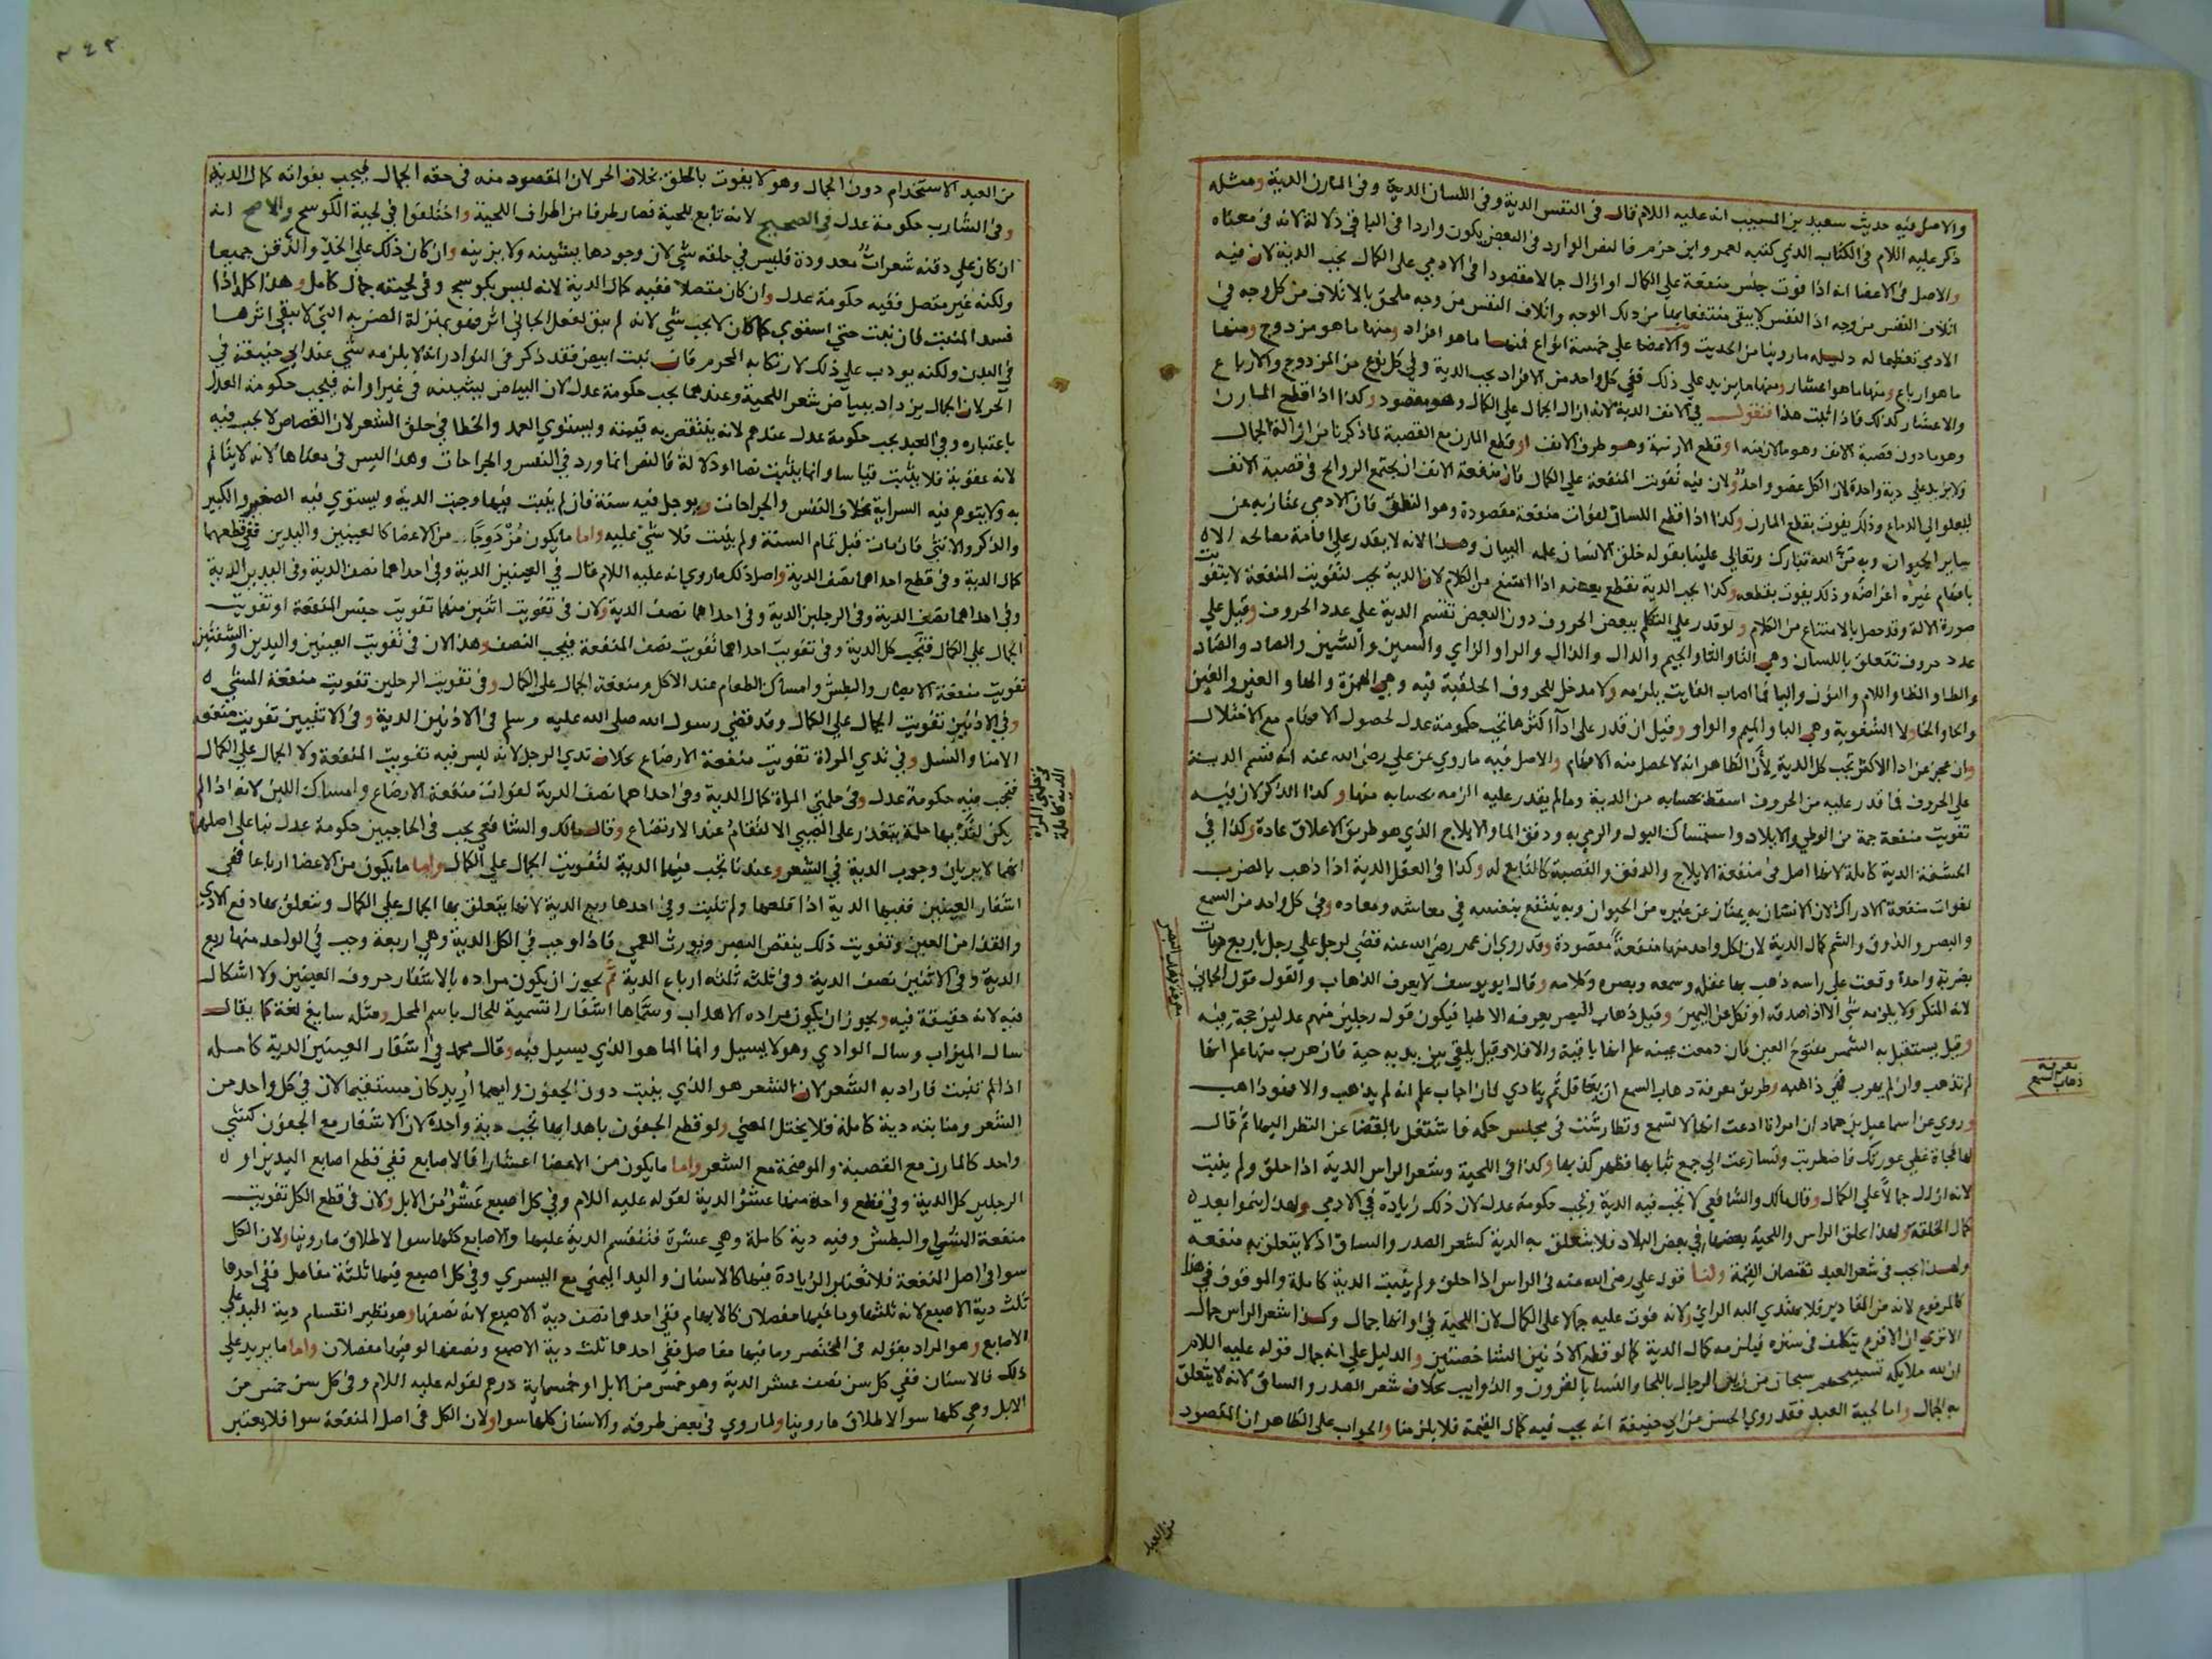 والاصل فيه حديث سعيد بن المسيب انه عليه اللام قال في النفس الدية وفي اللسان الدية وفي المارن الدية ومثله
ذكر عليه اللام في الكتاب الذي كتبه لعمرو ابن حزم فالنص الوارد في البعض يكون واردا في الباقي دلالة لانه في معناه
والاصل في الاعضا انه اذا فوت جنس منفعة على الكمال او ازال جمالا مقصودا في الادمي على الكمال يجب الدية لان فيه
اتلاف النفس من وجه اذ النفس لا يبقى منتفعا بها من ذلك الوجه واتلاف النفس من وجه ملحق بالاتلاف من كل وجه في
الادمي تعظيما له دليله ما روينا من الحديث والاعضا على خمسة انواع فمنها ما هو افراد ومنها ما هو مزدوج ومنها
ما هو ارباع ومنها ما هو اعشار ومنها ما يزيد على ذلك ففي كل واحد من الافراد يجب الدية وفي كل نوع من المزدوج والارباع
والاعشار كذلك فاذا اثبت هذا فنقول في الانف الدية لانه ازال الجمال على الكمال وهو مقصود وكذا اذا قطع المارن
وهو ما دون قصبة الانف وهو مالان منه او قطع الارنبة وهو طرف الانف او قطع المارن مع القصبة لما ذكرنا من ازالة الجمال
ولا يزيد على دية واحدة لان الكل عضو واحد ولان فيه تفويت المنفعة على الكمال فان منفعة الانف ان يجتمع الروائح في قصبة الانف
ليعلو الى الدماغ وذلك يفوت بقطع المارن وكذا اذا قطع اللسان لفوات منفعة مقصودة وهو النطق فان الادمي يمتاز به عن
ساير الحيوان وبه من الله تبارك وتعالى علينا بقوله خلق الانسان علمه البيان وهذا لانه لا يقدر على اقامة مصالحه الا
بافهام غيره اغراضه وذلك يفوت بقطعه وكذا يجب الدية بقطع بعضه اذا امتنع من الكلام لان الدية تجب لتفويت المنفعة لا يتفويت
صورة الالة وقد حصل بالامتناع من الكلام ولو قدر على التكلم ببعض الحروف دون البعض تقسم الدية على عدد الحروف وقيل على
عدد حروف تتعلق باللسان وهي التا والثا والجيم والدال والذال والرا والزاي والسين والشين والصاد والضاد
والطا والظا واللام والنون واليا فما اصاب الفايت يلزمه ولا مدخل للحروف الحلقية فيه وهي الهمزة والها والعين والغين
والحا والخا ولا الشفوية وهي البا والميم والواو وقيل ان قدر على ادا اكثرها تجب حكومة عدل لحصول الافهام مع الاختلال
وان عجز عن ادا الاكثر تجب كل الدية لان الظاهر انه لا يحصل منه الافهام والاصل فيه ما روي عن علي رضي الله عنه انه قسم الدية
على الحروف فما قدر عليه من الحروف اسقط بحسابه من الدية وما لم يقدر عليه الزمه بحسابه منها وكذا الذكر لان فيه
تفويت منفعة جمة من الوطي والايلاد واستمساك البول والرمي به ودفق الما والايلاج الذي هو طريق الاعلاق عادة وكذا في
الحشفة الدية كاملة لانها اصل في منفعة الايلاج والدفق والقصبة كالتابع له وكذا في العقل الدية اذا ذهب بالضرب
لفوات منفعة الادراك لان الانسان به يمتاز عن غيره من الحيوان وبه ينتفع بنفسه في معاشه ومعاده وفي كل واحد من السمع
والبصر والذوق والشم كمال الدية لان لكل واحد منها منفعة مقصودة وقد روي ان عمر رضي الله عنه قضى لرجل على رجل باربع ديات
بضربة واحدة وقعت على راسه ذهب بها عقله وسمعه وبصره وكلامه وقال ابو يوسف لا يعرف الذهاب والقول قول الجاني
لانه المنكر ولا يلزمه شي الا اذا صدقه او نكل عن اليمين وقيل ذهاب البصر يعرفه الاطبا فيكون قول رجلين منهم عدلين حجة فيه
وقيل يستقبل به الشمس مفتوح العين فان دمعت عينه علم انها باقية والا فلا وقيل يلقى بين يديه حية فان هرب منها علم انها
لم تذهب وان لم يهرب فهي ذاهبة وطريق معرفة ذهاب السمع ان يتغافل ثم ينادي فان اجاب علم انه لم يذهب والا فهو ذاهب
وروي عن اسماعيل بن حماد ان امراة ادعت انها لا تسمع وتطارشت في مجلس حكمه فاشتغل بالقضا عن النظر اليها ثم قال
لها فجاة غطي عورتك فاضطربت وتسارعت الى جمع ثيابها فظهر كذبها وكذا في اللحية وشعر الراس الدية اذا حلق ولم ينبت
لانه ازال جمالا على الكمال وقال مالك والشافعي لا تجب فيه الدية وتجب حكومة عدل لان ذلك زيادة في الادمي ولهذا ينموا بعد
كمال الخلقة ولهذا يحلق الراس واللحية بعضها في بعض البلاد فلا يتعلق به الدية كشعر الصدر والساق اذ لا يتعلق به منفعة
ولهذا تجب في شعر العبد نقصان القيمة ولنا قول علي رضي الله عنه في الراس اذا حلق ولم ينبت الدية كاملة والموقوف في هذا
كالمرفوع لانه من المقادير فلا يهتدي اليه الراي ولانه فوت عليه جمالا على الكمال لان اللحية في اوانها جمال وكذا شعر الراس جمال
الا ترى ان الاقرع يتكلف في ستره فيلزمه كمال الدية كما لو قطع الاذنين الشاخصتين والدليل على انه جمال قوله عليه اللام
ان لله ملايكة تسبيحهم سبحان من زين الرجال باللحا والنسا بالقرون والذوايب بخلاف شعر الصدر والساق لانه لا يتعلق
به الجمال واما لحية العبد فقد روي الحسن عن ابي حنيفة انه يجب فيه كمال القيمة فلا يلزمنا والجواب على الظاهر ان المقصود
معرفة ذهاب البصر
معرفة
ذهاب السمع
من العبد
٢٤٣
من العبد الاستخدام دون الجمال وهو لا يفوت بالحلق بخلاف الحر لان المقصود منه في حقه الجمال فيجب بفواته كمال الدية
وفي الشارب حكومة عدل في الصحيح لانه تابع للحية فصار طرفا من اطراف اللحية واختلفوا في لحية الكوسج والاصح انه
ان كان على ذقنه شعرات معدودة فليس في حلقه شي لان وجودها يشينه ولا يزينه وان كان ذلك على الخد والذقن جميعا
ولكنه غير متصل ففيه حكومة عدل وان كان متصلا ففيه كمال الدية لانه ليس بكوسج وفي لحيته جمال كامل وهذا كله اذا
فسد المنبت فان نبت حتى استوى كما كان لا يجب شي لانه لم يبق لفعل الجاني اثر فهو بمنزلة الضربة التي لا يبقى اثرها
في البدن ولكنه يودب على ذلك لارتكابه المحرم فان نبت ابيض فقد ذكر في النوادر انه لا يلزمه شي عند ابي حنيفة في
الحر لان الجمال يزداد ببياض شعر اللحية وعندهما يجب حكومة عدل لان البياض يشينه في غير اوانه فيجب حكومة العدل
باعتباره وفي العبد يجب حكومة عدل عندهم لانه ينتقص به قيمته ويستوي العمد والخطا في حلق الشعر لان القصاص لا يجب فيه
لانه عقوبة فلا يثبت قياسا وانما يثبت نصا او دلالة فالنص انما ورد في النفس والجراحات وهذا ليس في معناها لانه لا يتالم
به ولا يتوهم فيه السراية بخلاف النفس والجراحات ويوجل فيه سنة فان لم ينبت فيها وجبت الدية ويستوي فيه الصغير والكبير
والذكر والانثى فان مات قبل تمام السنة ولم ينبت فلا شي عليه واما ما يكون مزدوجا من الاعضا كالعينين واليدين ففي قطعهما
كمال الدية وفي قطع احداهما نصف الدية واصل ذلك ما روي انه عليه اللام قال في العينين الدية وفي احداهما نصف الدية وفي اليدين الدية
وفي احداهما نصف الدية وفي الرجلين الدية وفي احداهما نصف الدية ولان في تفويت اثنين منهما تفويت جنس المنفعة او تفويت
الجمال على الكمال فتجب كل الدية وفي تفويت احداهما تفويت نصف المنفعة فيجب النصف وهذا لان في تفويت العينين واليدين والشفتين
تفويت منفعة الابصار والبطش وامساك الطعام عند الاكل ومنفعة الجمال على الكمال وفي تفويت الرجلين تفويت منفعة المشي
وفي الاذنين تفويت الجمال على الكمال وقد قضى رسول الله صلى الله عليه وسلم في الاذنين الدية وفي الانثيين تفويت منفعة
الامنا والنسل وفي ثدي المراة تفويت منفعة الارضاع بخلاف ثدي الرجل لانه ليس فيه تفويت المنفعة ولا الجمال على الكمال
فتجب فيه حكومة عدل وفي حلمتي المراة كمال الدية وفي احداهما نصف الدية لفوات منفعة الارضاع وامساك اللبن لانه اذا لم
يكن لثديها حلمة يتعذر على الصبي الالتقام عند الارتضاع وقال مالك والشافعي يجب في الحاجبين حكومة عدل بنا على اصلهما
انهما لا يريان وجوب الدية في الشعر وعندنا تجب فيهما الدية لتفويت الجمال على الكمال واما ما يكون من الاعضا ارباعا ففي
اشفار العينين ففيها الدية اذا قلعها ولم تنبت وفي احدها ربع الدية لانها يتعلق بها الجمال على الكمال ويتعلق بها دفع الاذي
والقذا من العين وتفويت ذلك ينقص البصر ويورث العمى فاذا وجب في الكل الدية وهي اربعة وجب في الواحد منها ربع
الدية وفي الاثنين نصف الدية وفي ثلثه ثلثه ارباع الدية ثم يجوز ان يكون مراده بالاشفار حروف العينين ولا اشكال
فيه لانه حقيقة فيه ويجوز ان يكون مراده الاهداب وسماها اشفارا تسمية للحال باسم المحل ومثله سايغ لغة كما يقال
سال الميزاب وسال الوادي وهو لا يسيل وانما الما هو الذي يسيل فيه وقال محمد في اشفار العينين الدية كاملة
اذا لم تنبت فاراد به الشعر لان الشعر هو الذي ينبت دون الجفون وايهما اريد كان مستقيما لان في كل واحد من
الشعر ومنابته دية كاملة فلا يختل المعنى ولو قطع الجفون باهدابها تجب دية واحدة لان الاشفار مع الجفون كشي
واحد كالمارن مع القصبة والموضحة مع الشعر واما ما يكون من الاعضا اعشارا فالاصابع ففي قطع اصابع اليدين او
الرجلين كل الدية وفي قطع واحدة منها عشر الدية لقوله عليه اللام وفي كل اصبع عشر من الابل ولان في قطع الكل تفويت
منفعة المشي او البطش وفيه دية كاملة وهي عشرة فتقسم الدية عليها والاصابع كلها سوا لاطلاق ما روينا ولان الكل
سوا في اصل المنفعة فلا تعتبر الزيادة فيها كالاسنان واليد اليمنى مع اليسرى وفي كل اصبع فيها ثلثة مفاصل ففي احدها
ثلث دية الاصبع لانه ثلثها وما فيها مفصلان كالابهام ففي احدهما نصف دية الاصبع لانه نصفها وهو نظير انقسام دية اليد على
الاصابع وهو المراد بقوله في المختصر وما فيها مفاصل ففي احدها ثلث دية الاصبع ونصفها لو فيها مفصلان واما ما يزيد على
ذلك فالاسنان ففي كل سن نصف عشر الدية وهو خمس من الابل او خمسماية درهم لقوله عليه اللام وفي كل سن خمس من
الابل وهي كلها سوا لاطلاق ما روينا ولما روي في بعض طرقه والاسنان كلها سوا ولان الكل في اصل المنفعة سوا فلا يعتبر
الدية كاملة